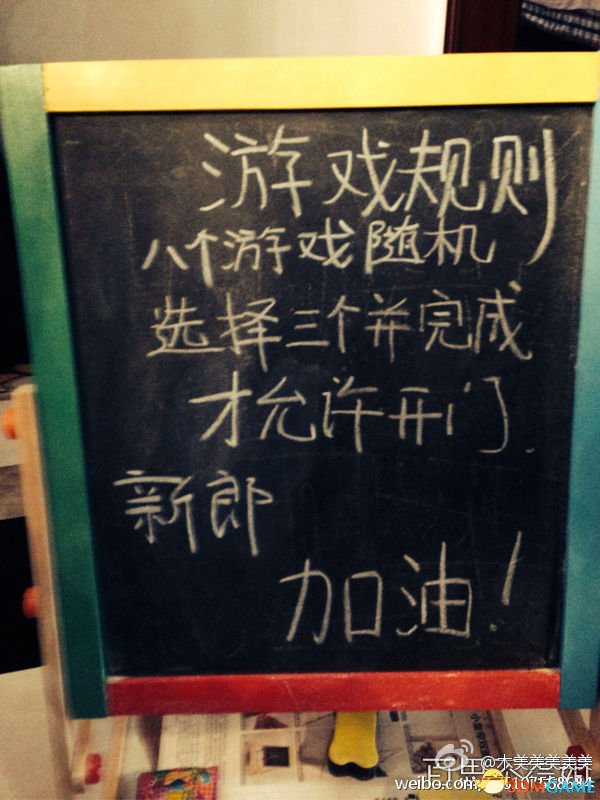 游戏规则
八个游戏随机
选择三个并完成
才允许开门.
新郎
加油!
@木美美美美美
weibo.com/